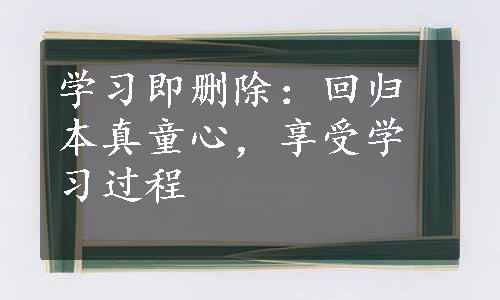 学习即删除：回归
本真童心，享受学
习过程